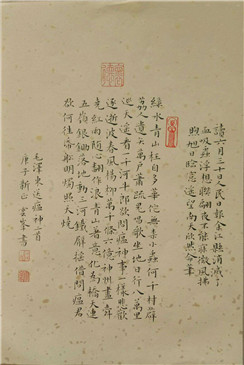 讀六月三十日人民日報余江縣消滅了
血吸蟲浮想聯翩夜不能寐微風拂
煦旭日臨窗遙望南天欣然命筆
綠水青山枉自多華佗無奈小蟲何千村薜
荔人遺矢萬戶蕭疏鬼唱歌坐地日行八萬里
巡天遙看一千河牛郎欲問瘟神事一樣悲歡
逐逝波春風楊柳萬千條六億神州盡舜
堯紅雨隨心翻作浪青山著意化為橋天連
五嶺銀鋤落地動三河鐵臂搖借問瘟君
欲何往紙船明燭照天燒
毛澤東送瘟神二首
庚子新正